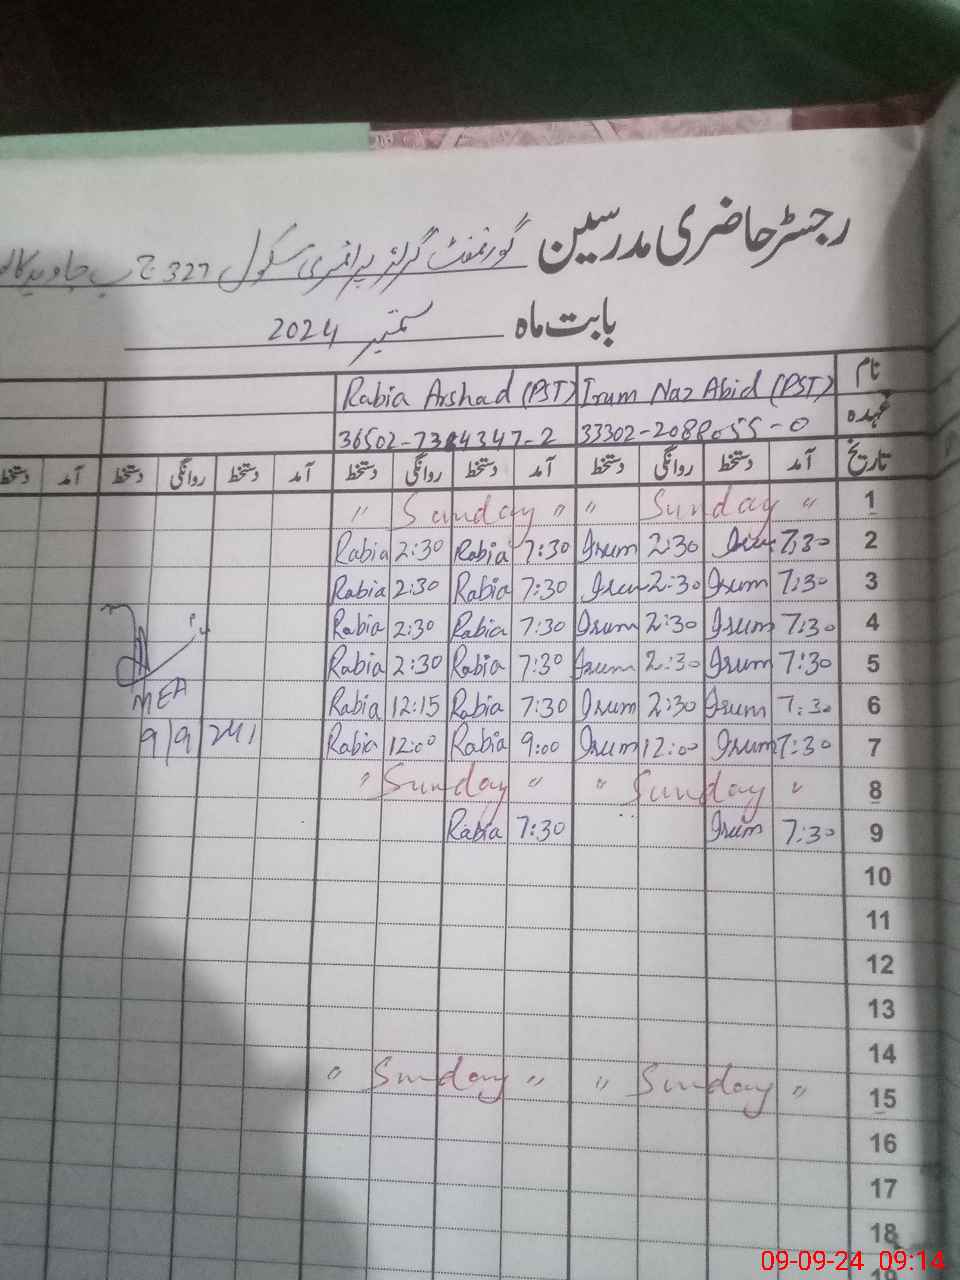 رجسٹر حاضری مدرسین گورنمنٹ گرلز پرائمری سکول 327 ج ب جاوید
بابت ماہ ستمبر 2024
نام Irum Naz Abid (PST) Rabia Arshad (PST)
عہدہ 33302-2088055-0
تاریخ آمد دستخط روانگی دستخط آمد دستخط روانگی دستخط آمد دستخط روانگی دستخط آمد دستخط
1 " Sunday " " Sunday "
2 7:30 Irum 2:30 Irum 7:30 Rabia 2:30 Rabia
3 7:30 Irum 2:30 Irum 7:30 Rabia 2:30 Rabia
4 7:30 Irum 2:30 Irum 7:30 Rabia 2:30 Rabia
5 7:30 Irum 2:30 Irum 7:30 Rabia 2:30 Rabia
6 7:30 Irum 2:30 Irum 7:30 Rabia 12:15 Rabia MEA
7 7:30 Irum 12:00 Irum 9:00 Rabia 12:00 Rabia 9/9/24
8 " Sunday " " Sunday "
9 7:30 Irum 7:30 Rabia
10
11
12
13
14
15 " Sunday " " Sunday "
16
17
18
09-09-24 09:14